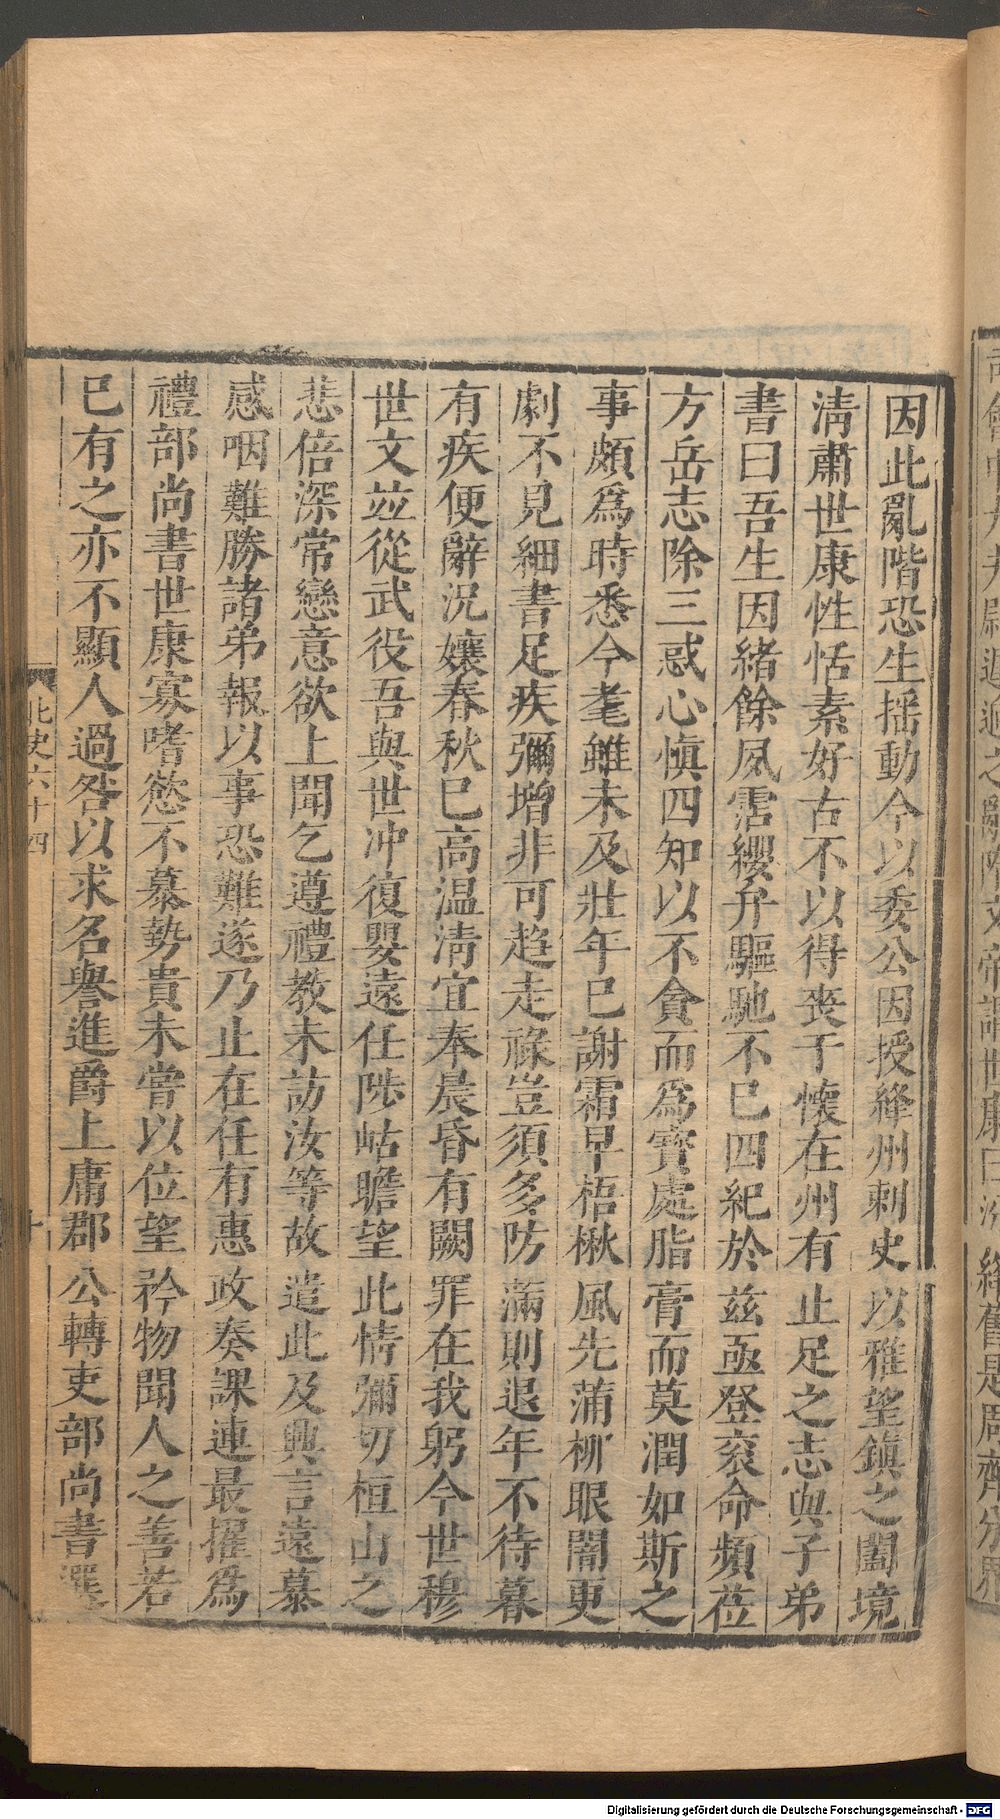 因此亂階恐生揺動今以委公因授絳州刺史以雅望鎮之闔境
清肅世康性恬素好古不以得喪干懷在州有止足之志與子弟
書曰吾生因緒餘夙霑纓弁驅馳不已四紀於兹亟登衮命頻莅
方岳志除三惑心慎四知以不貪而爲寳處脂膏而莫潤如斯之
事頗爲時悉今耄雖未及壯年已謝霜早梧楸風先蒲柳眼闇更
劇不見細書足疾彌增非可趨走祿豈須多防滿則退年不待暮
有疾便辭況孃春秋已高温凊宜奉晨昏有闕罪在我躬今世穆
世文並從武役吾與世冲復嬰遠任陟岵瞻望此情彌切桓山之
悲倍深常戀意欲上聞乞遵禮教未訪汝等故遣此及興言遠慕
感咽難勝諸弟報以事恐難遂乃止在任有惠政奏課連最擢爲
禮部尚書世康寡嗜慾不慕勢貴未嘗以位望矜物聞人之善若
已有之亦不顯人過咎以求名譽進爵上庸郡公轉吏部尚書選
北史六十四
十
Digitalisierung gefördert durch die Deutsche Forschungsgemeinschaft - DFG